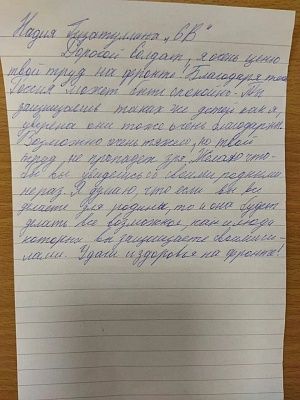 Надия Гизатуллина „6В"
Дорогой Солдат, я очень ценю
твой труд на фронте! Благодаря тебе
Россия может быть спокойно. Ты
защищаешь таких же детей как я,
уверена они тоже очень благодарны.
Возможно жен тяжело, но твой
труд, не пропадёт зря. Желаю что-
бы вы увиделись со своими родными
не раз. Я думаю, что если вы всё
делаете для родины, то и она будет
делать всё возможное, как и люди
которых вы защищаете своими си-
лами. Удачи и здоровья на фронте!